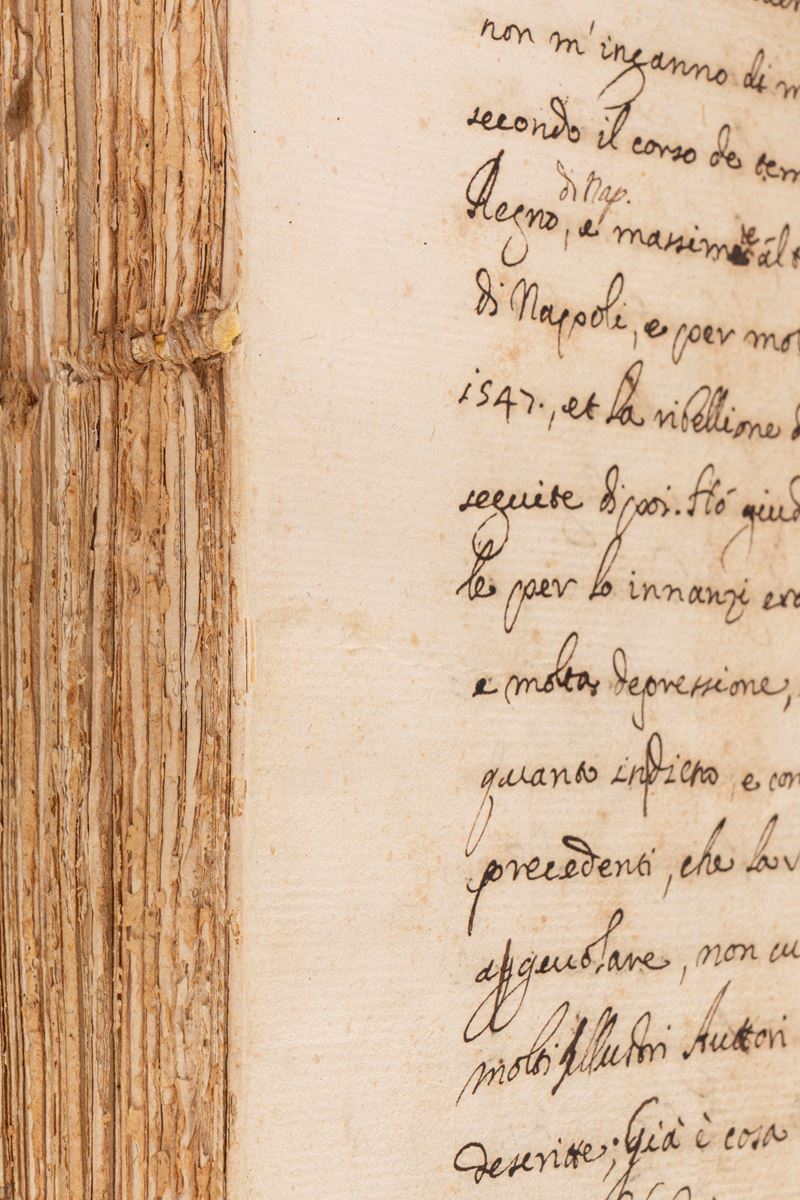 non m'inganno di
secondo il corso de
di Nap.
Regno, e massime
di Napoli, e per
1547., et la ribellione
seguite dipoi. Hò
le per lo innanzi
e molta depressione,
quanto indietro e
precedenti, che la
aggevolare, non
molti Illustri Auttori
descritte; Già è cosa